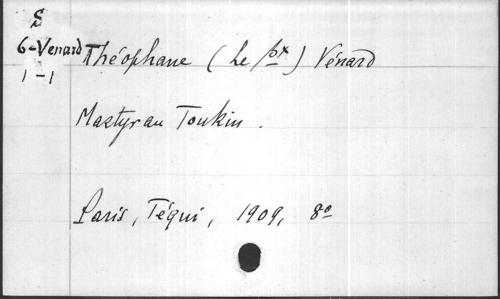 S
6-Venard
1-1
Théophane (Le Bx) Vénard
Martyr au Tonkin.
Paris, Téqui, 1909, 8o